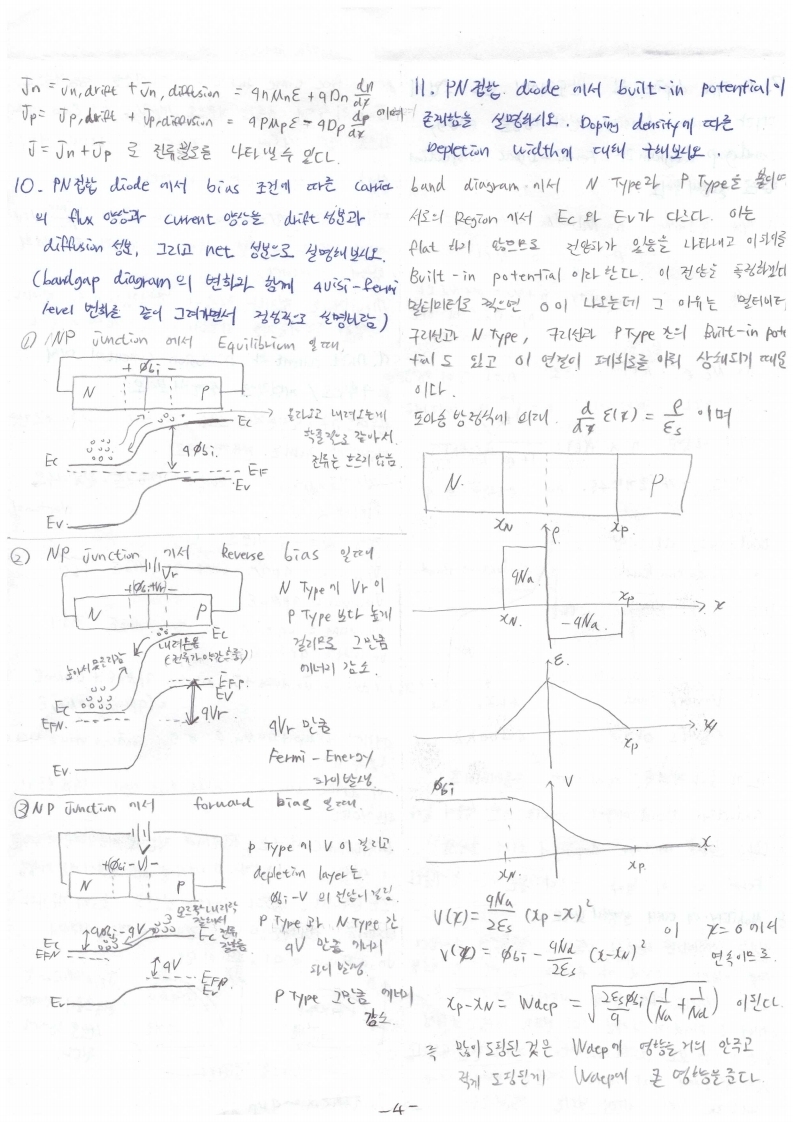 Jn = Jn,drift + Jn,diffusion = qnμnE + qDn dn/dx
Jp = Jp,drift + Jp,diffusion = qpμpE - qDp dp/dx 이며
J = Jn + Jp 로 전류흐름을 나타낼수 있다.
10. PN접합 diode 에서 bias 조건에 따른 carrier
의 flux 양상과 current 양상을 drift 성분과
diffusion 성분, 그리고 net 성분으로 설명해보시오.
(bandgap diagram의 변화와 함께 quisi-fermi
level 변화를 같이 그려가면서 정성적으로 설명바람)
① NP junction 에서 Equilibrium 일때.
+ Øbi -
N P
Ec
올라오고 내려오는게
확률적으로 같아서
전류는 흐르지 않음.
qØbi.
Ec
EF
Ev
Ev
② NP junction 에서 Reverse bias 일때
Vr
+Øbi+Vr-
N P
Ec
내려온다
(전류가 약간 흐름)
높아서 못올라감
N Type에 Vr이
P Type 보다 높게
걸리므로 그만큼
에너지 감소.
EFP.
Ev
Ec
EFN.
qVr
Ev
qVr 만큼
Fermi-Energy
차이발생.
③ NP junction 에서 forward bias 일때.
+Øbi-V-
N P
qØbi-qV
Ec
EFN
Ec
qV
EFP.
Ev
Ev
P Type에 V이 걸리고.
depletin layer는
Øbi-V 의 전압이 걸림
P Type과 N Type간
qV 만큼 에너지
차이 발생.
P Type 그만큼 에너지
감소.
11. PN접합 diode 에서 built-in potential이
존재함을 설명하시오. Doping density에 따른
Depletion width에 대해 구해보시오.
band diagram 에서 N Type과 P Type을 붙이면
서로의 Region 에서 Ec와 Ev가 다르다. 이는
flat 하지 않으므로 전압차가 있음을 나타내고 이 차이를
Built-in potential 이라 한다. 이 전압을 측정하겠다
멀티미터로 찍으면 0이 나오는데 그 이유는 멀티미터
구리선과 N Type, 구리선과 P Type 간의 Built-in poten
tial도 있고 이 연결이 폐회로를 이뤄 상쇄되기 때문
이다.
포아송 방정식에 의해. d/dx E(x) = ρ/εs 이며
N. P
xN xp
ρ
qNa
xp
x
xN.
-qNa.
E.
x
xp
Øbi V
x.
xN xp.
V(x) = qNa/2εs (xp-x)²
이 x=0 에서
V(x) = Øbi - qNd/2εs (x-xN)²
연속이므로.
xp-xN = Wdep = √(2εsØbi/q (1/Na + 1/Nd)) 이된다.
즉 많이 도핑된 것은 Wdep에 영향을 거의 안주고
적게 도핑된게 Wdep에 큰 영향을준다.
-4-